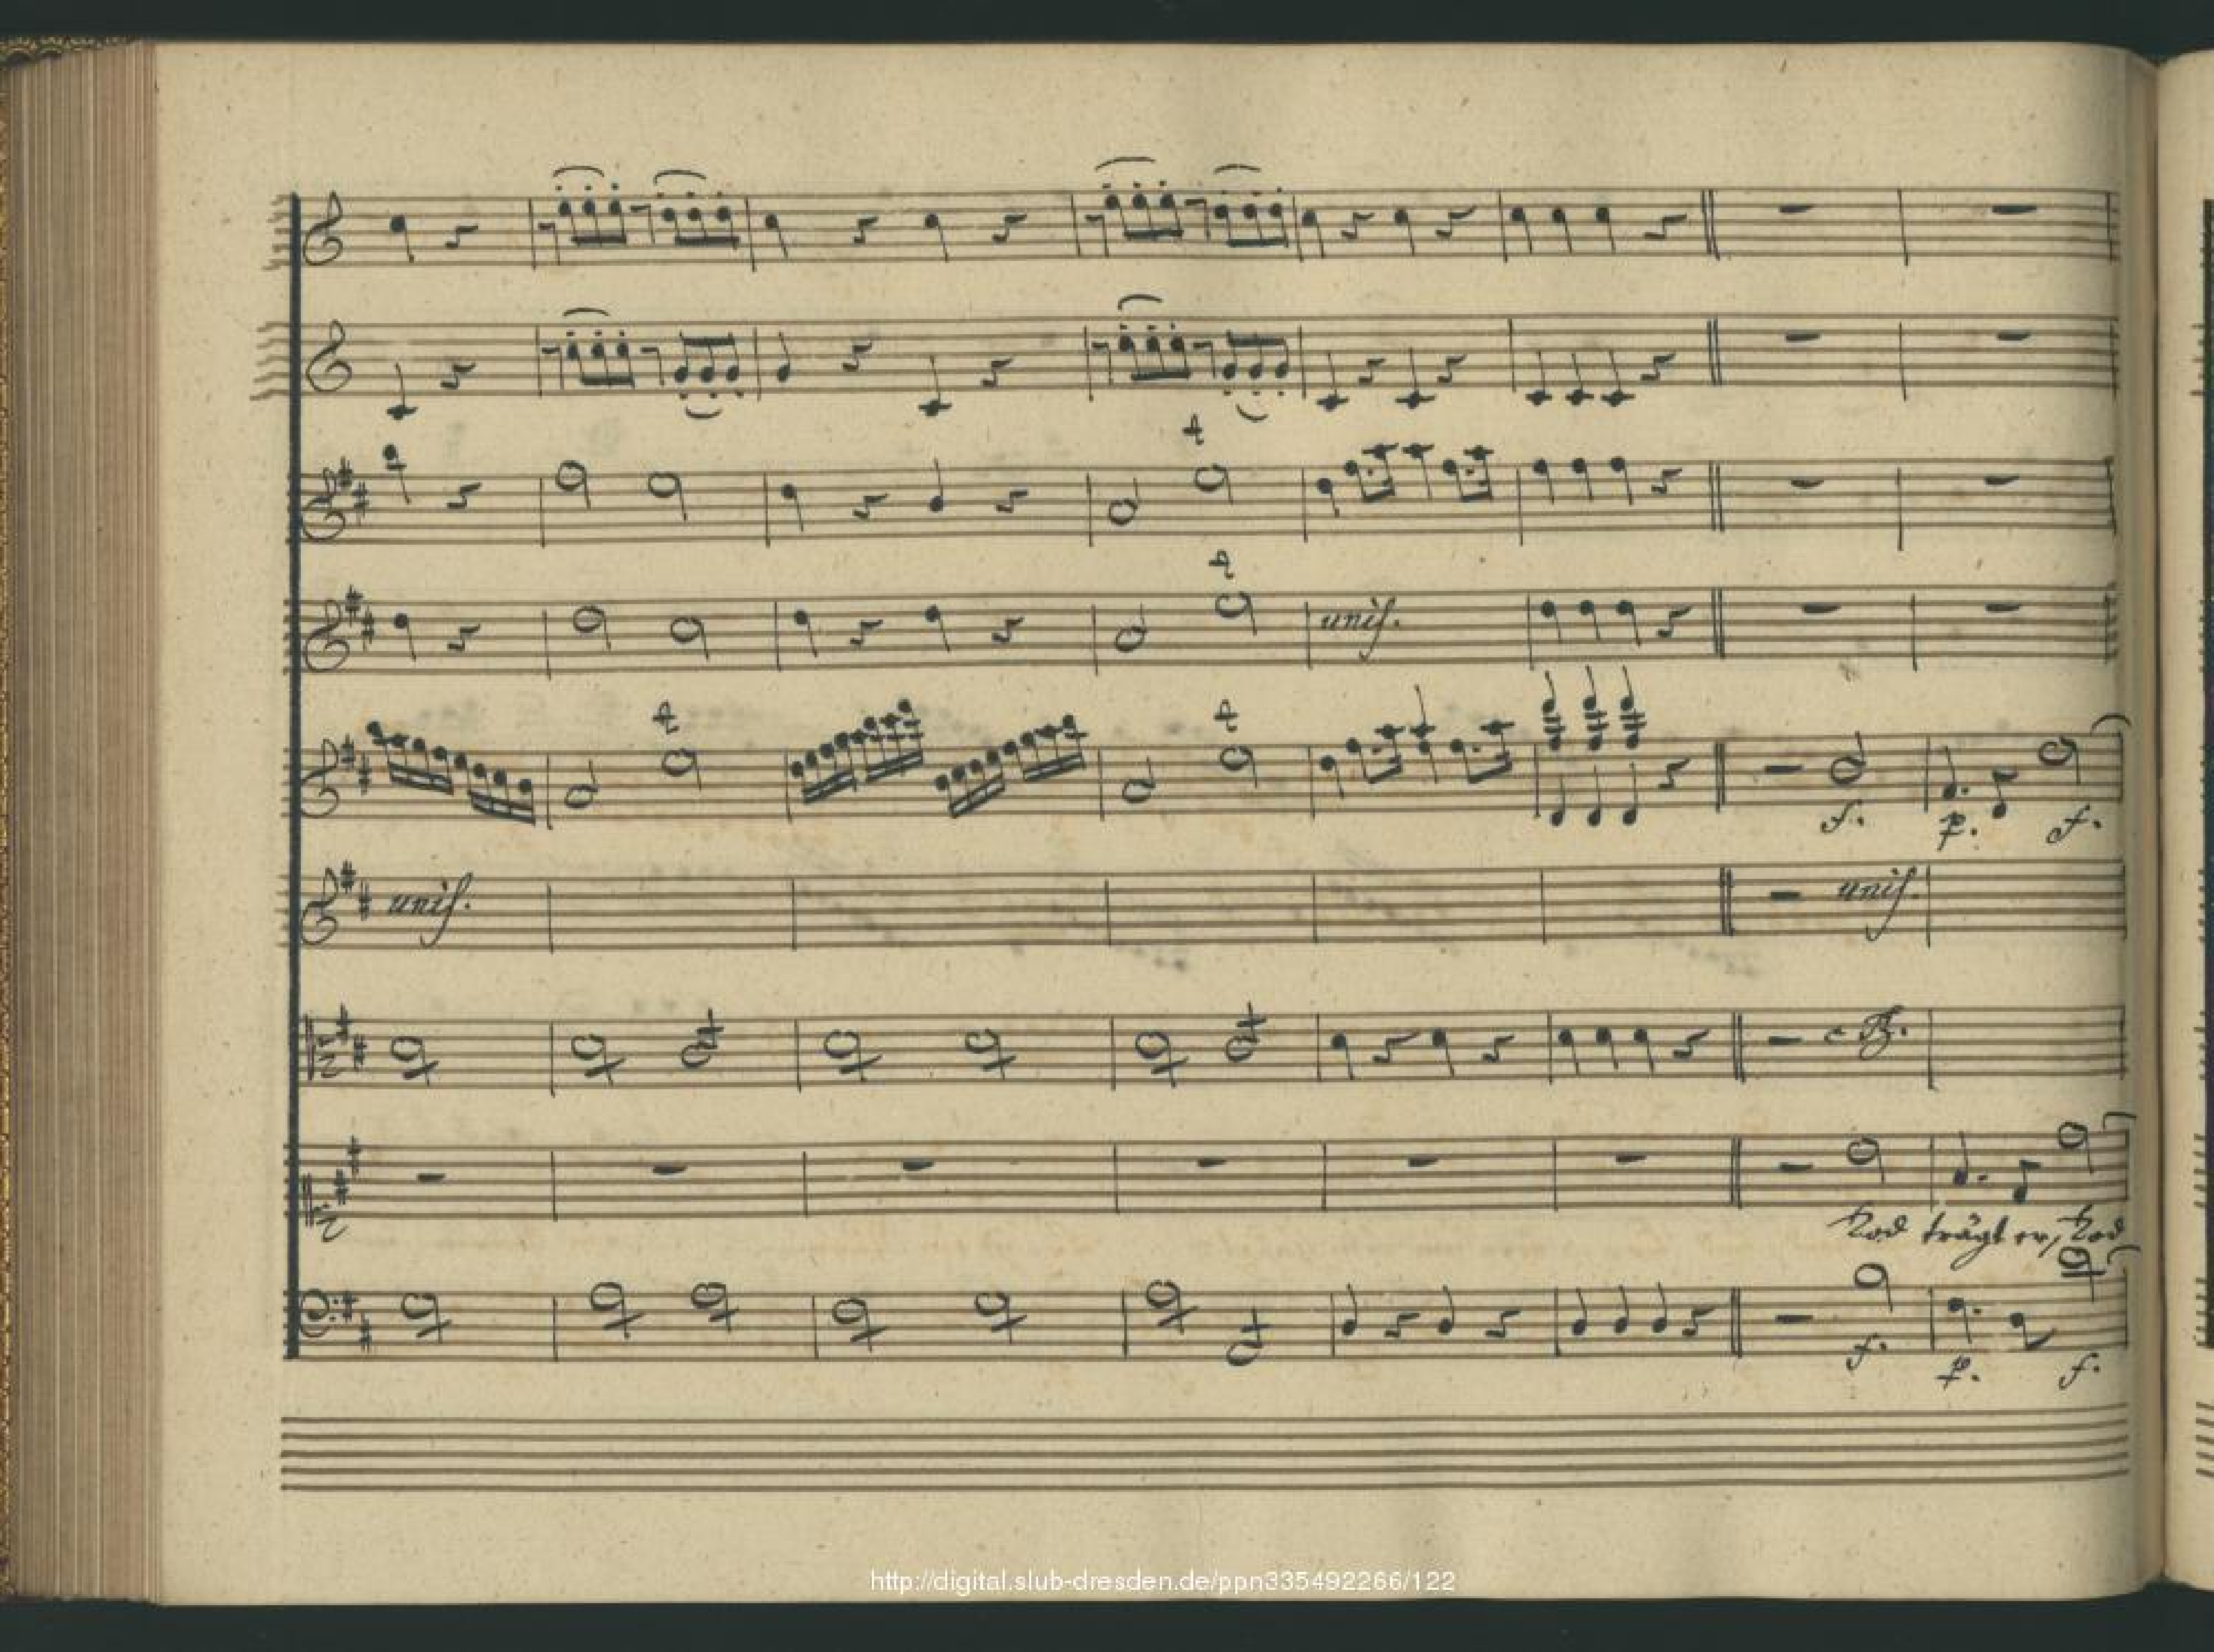 unis.
f. p. f.
unis. unis.
c B.
Tod trägt er, Tod
f. p. f.
http://digital.slub-dresden.de/ppn335492266/122